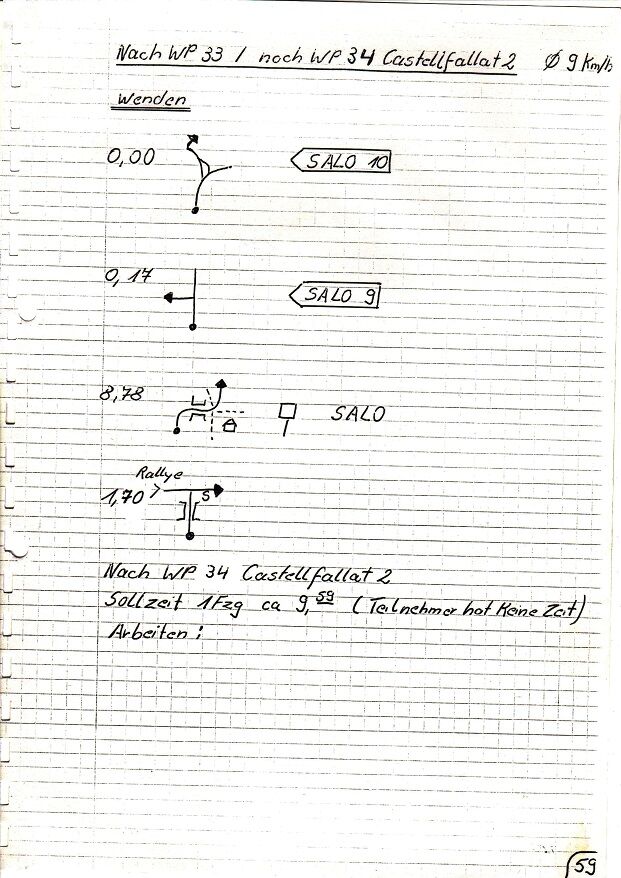 Nach WP 33 / noch WP 34 Castellfallat 2 Ø 9 Km/h
Wenden
0,00 SALO 10
0,17 SALO 9
8,78 SALO
Rallye
1,70 S
Nach WP 34 Castellfallat 2
Sollzeit 1 Fzg ca 9,59 (Teilnehmer hat Keine Zeit)
Arbeiten :
59